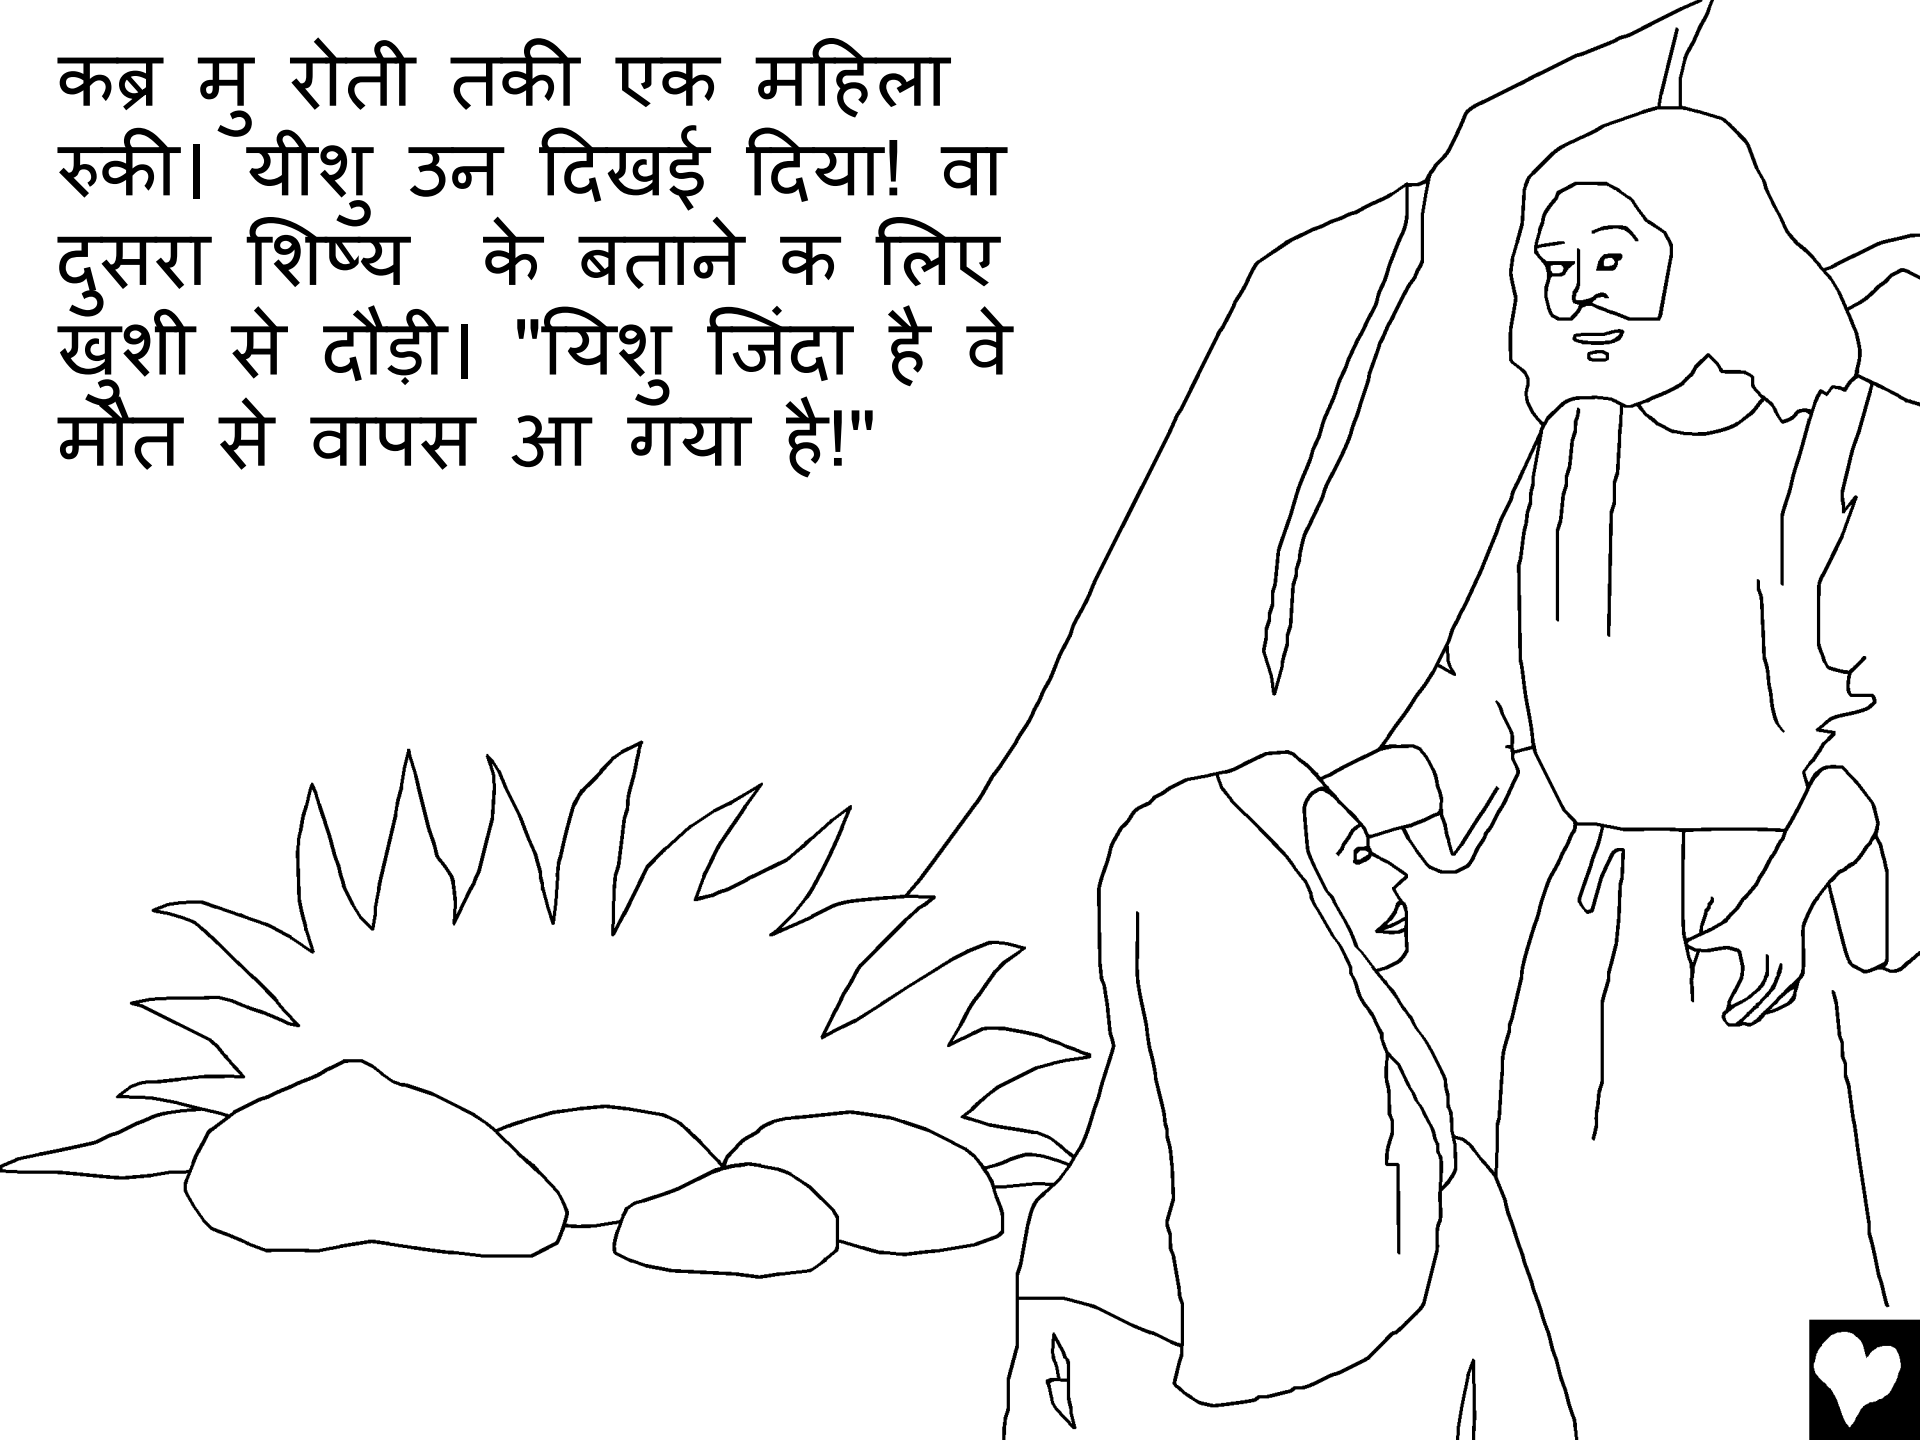 कब्र मु रोती तकी एक महिला
रुकी। यीशु उन दिखई दिया! वा
दुसरा शिष्य के बताने क लिए
खुशी से दौड़ी। "यिशु जिंदा है वे
मौत से वापस आ गया है!"